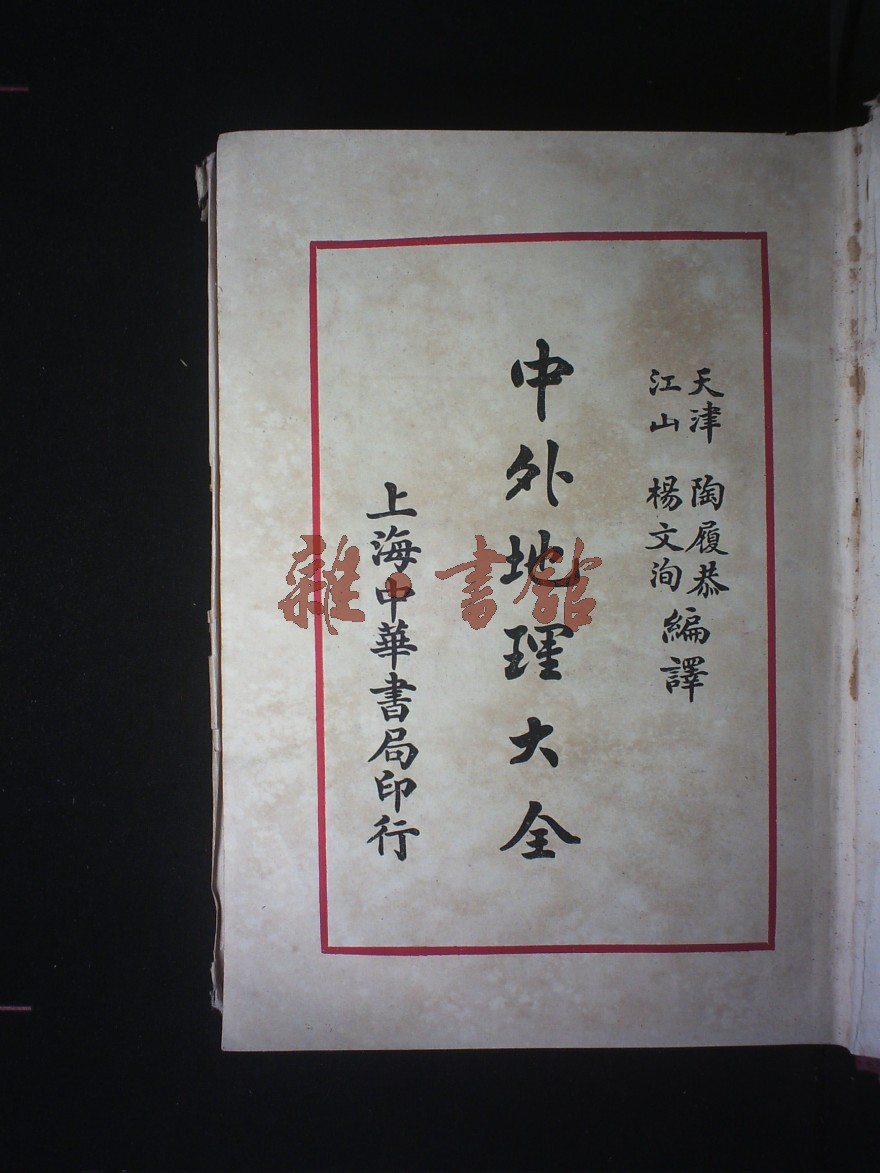 天津 陶履恭
江山 楊文洵
編譯
中外地理大全
上海中華書局印行
雜·書館